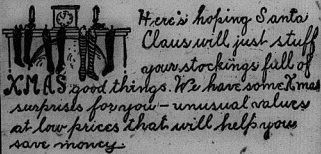 Here's hoping Santa
Claus will just stuff
your stockings full of
XMAS good things. We have some Xmas
surprises for you - unusual values
at low prices that will help you
save money.